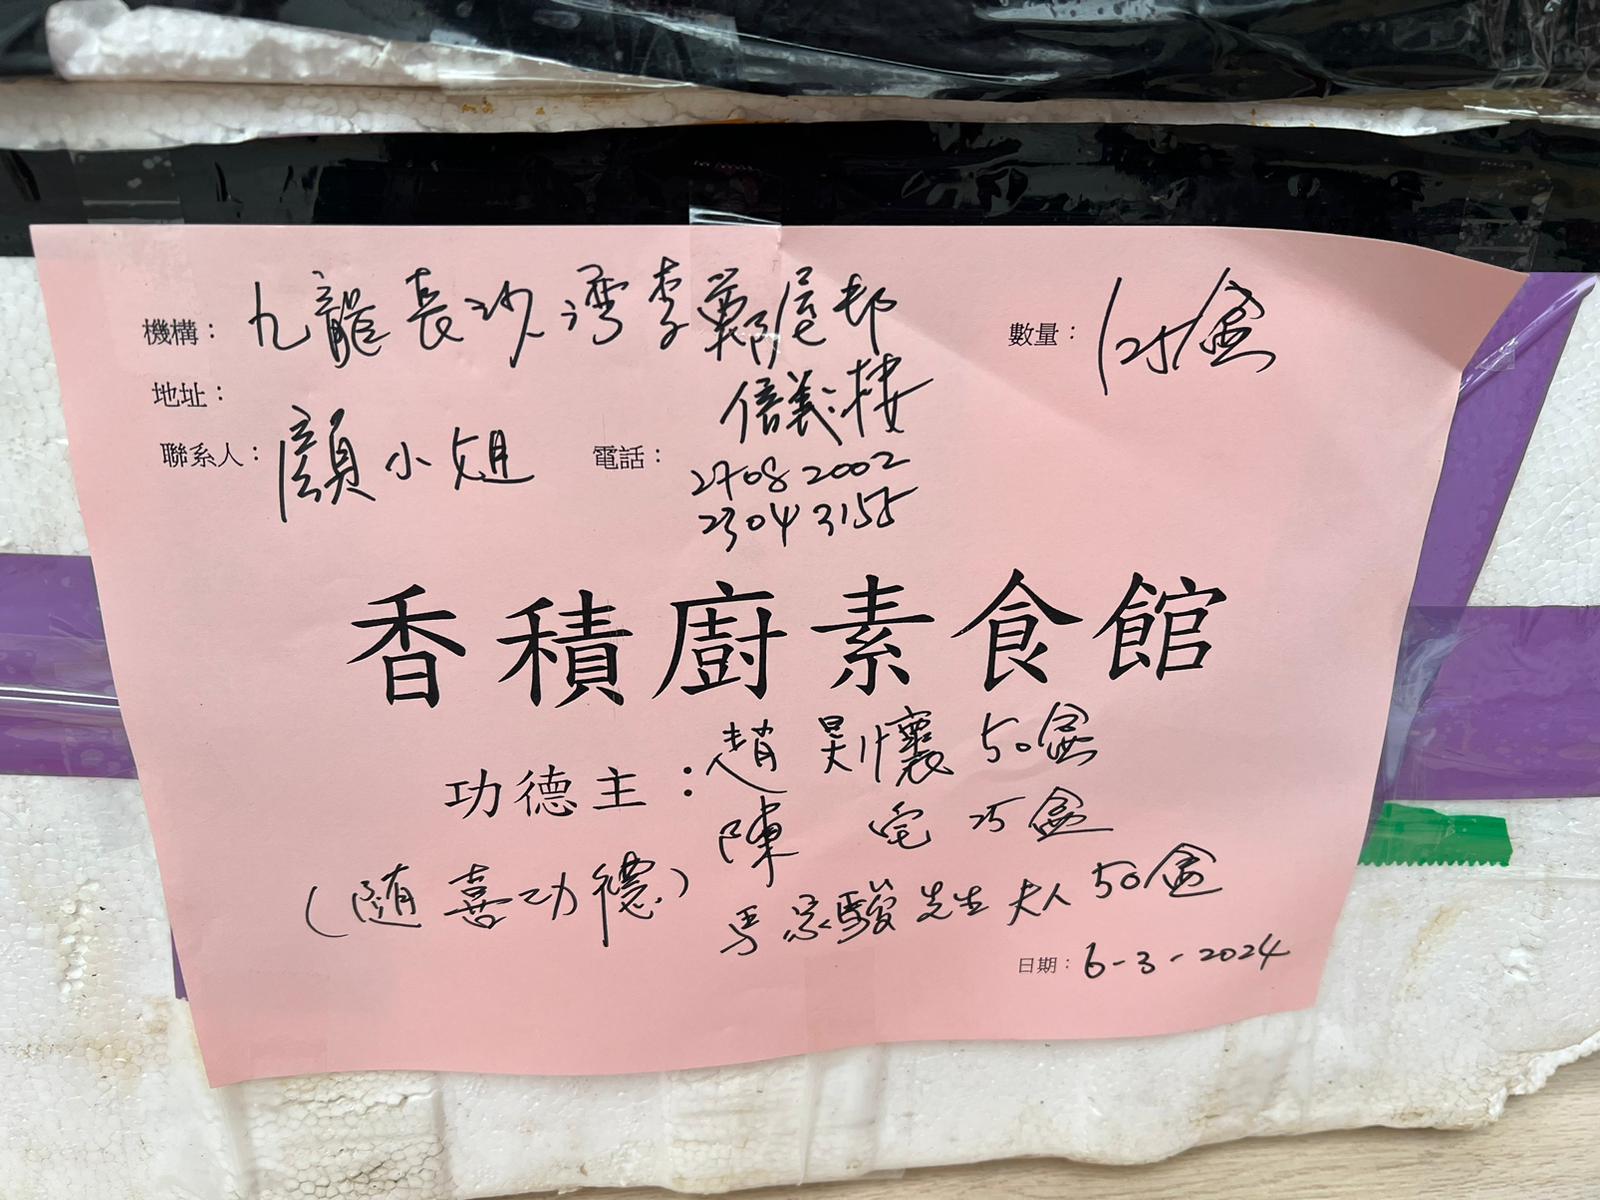 機構： 九龍長沙灣李鄭屋邨 數量： 125盒
地址： 信義樓
聯系人： 顏小姐 電話： 2708 2002
2304 3155
香積廚素食館
功德主：趙 懷 50盒
陳 宅 25盒
(隨喜功德) 馬家駿先生夫人 50盒
日期： 6-3-2024